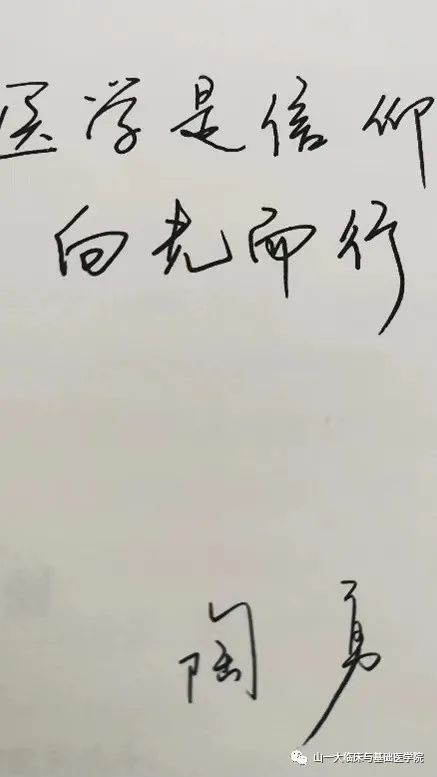 医学是信仰
向光而行
陶勇
山一大临床与基础医学院